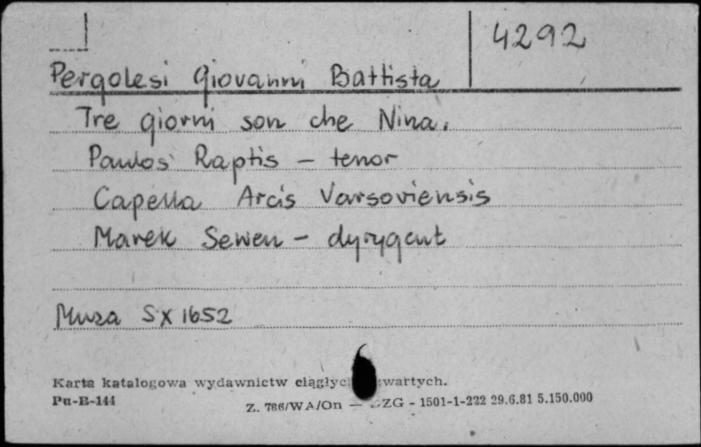 4292
Pergolesi Giovanni Battista
Tre giorni son che Nina.
Paulos Raptis - tenor
Capella Arcis Varsoviensis
Marek Sewen - dyrygent
Muza SX 1652
Karta katalogowa wydawnictw ciągłych
Pu-B-144
Z. 766/WA/On — ZG - 1501-1-222 29.6.81 5.150.000